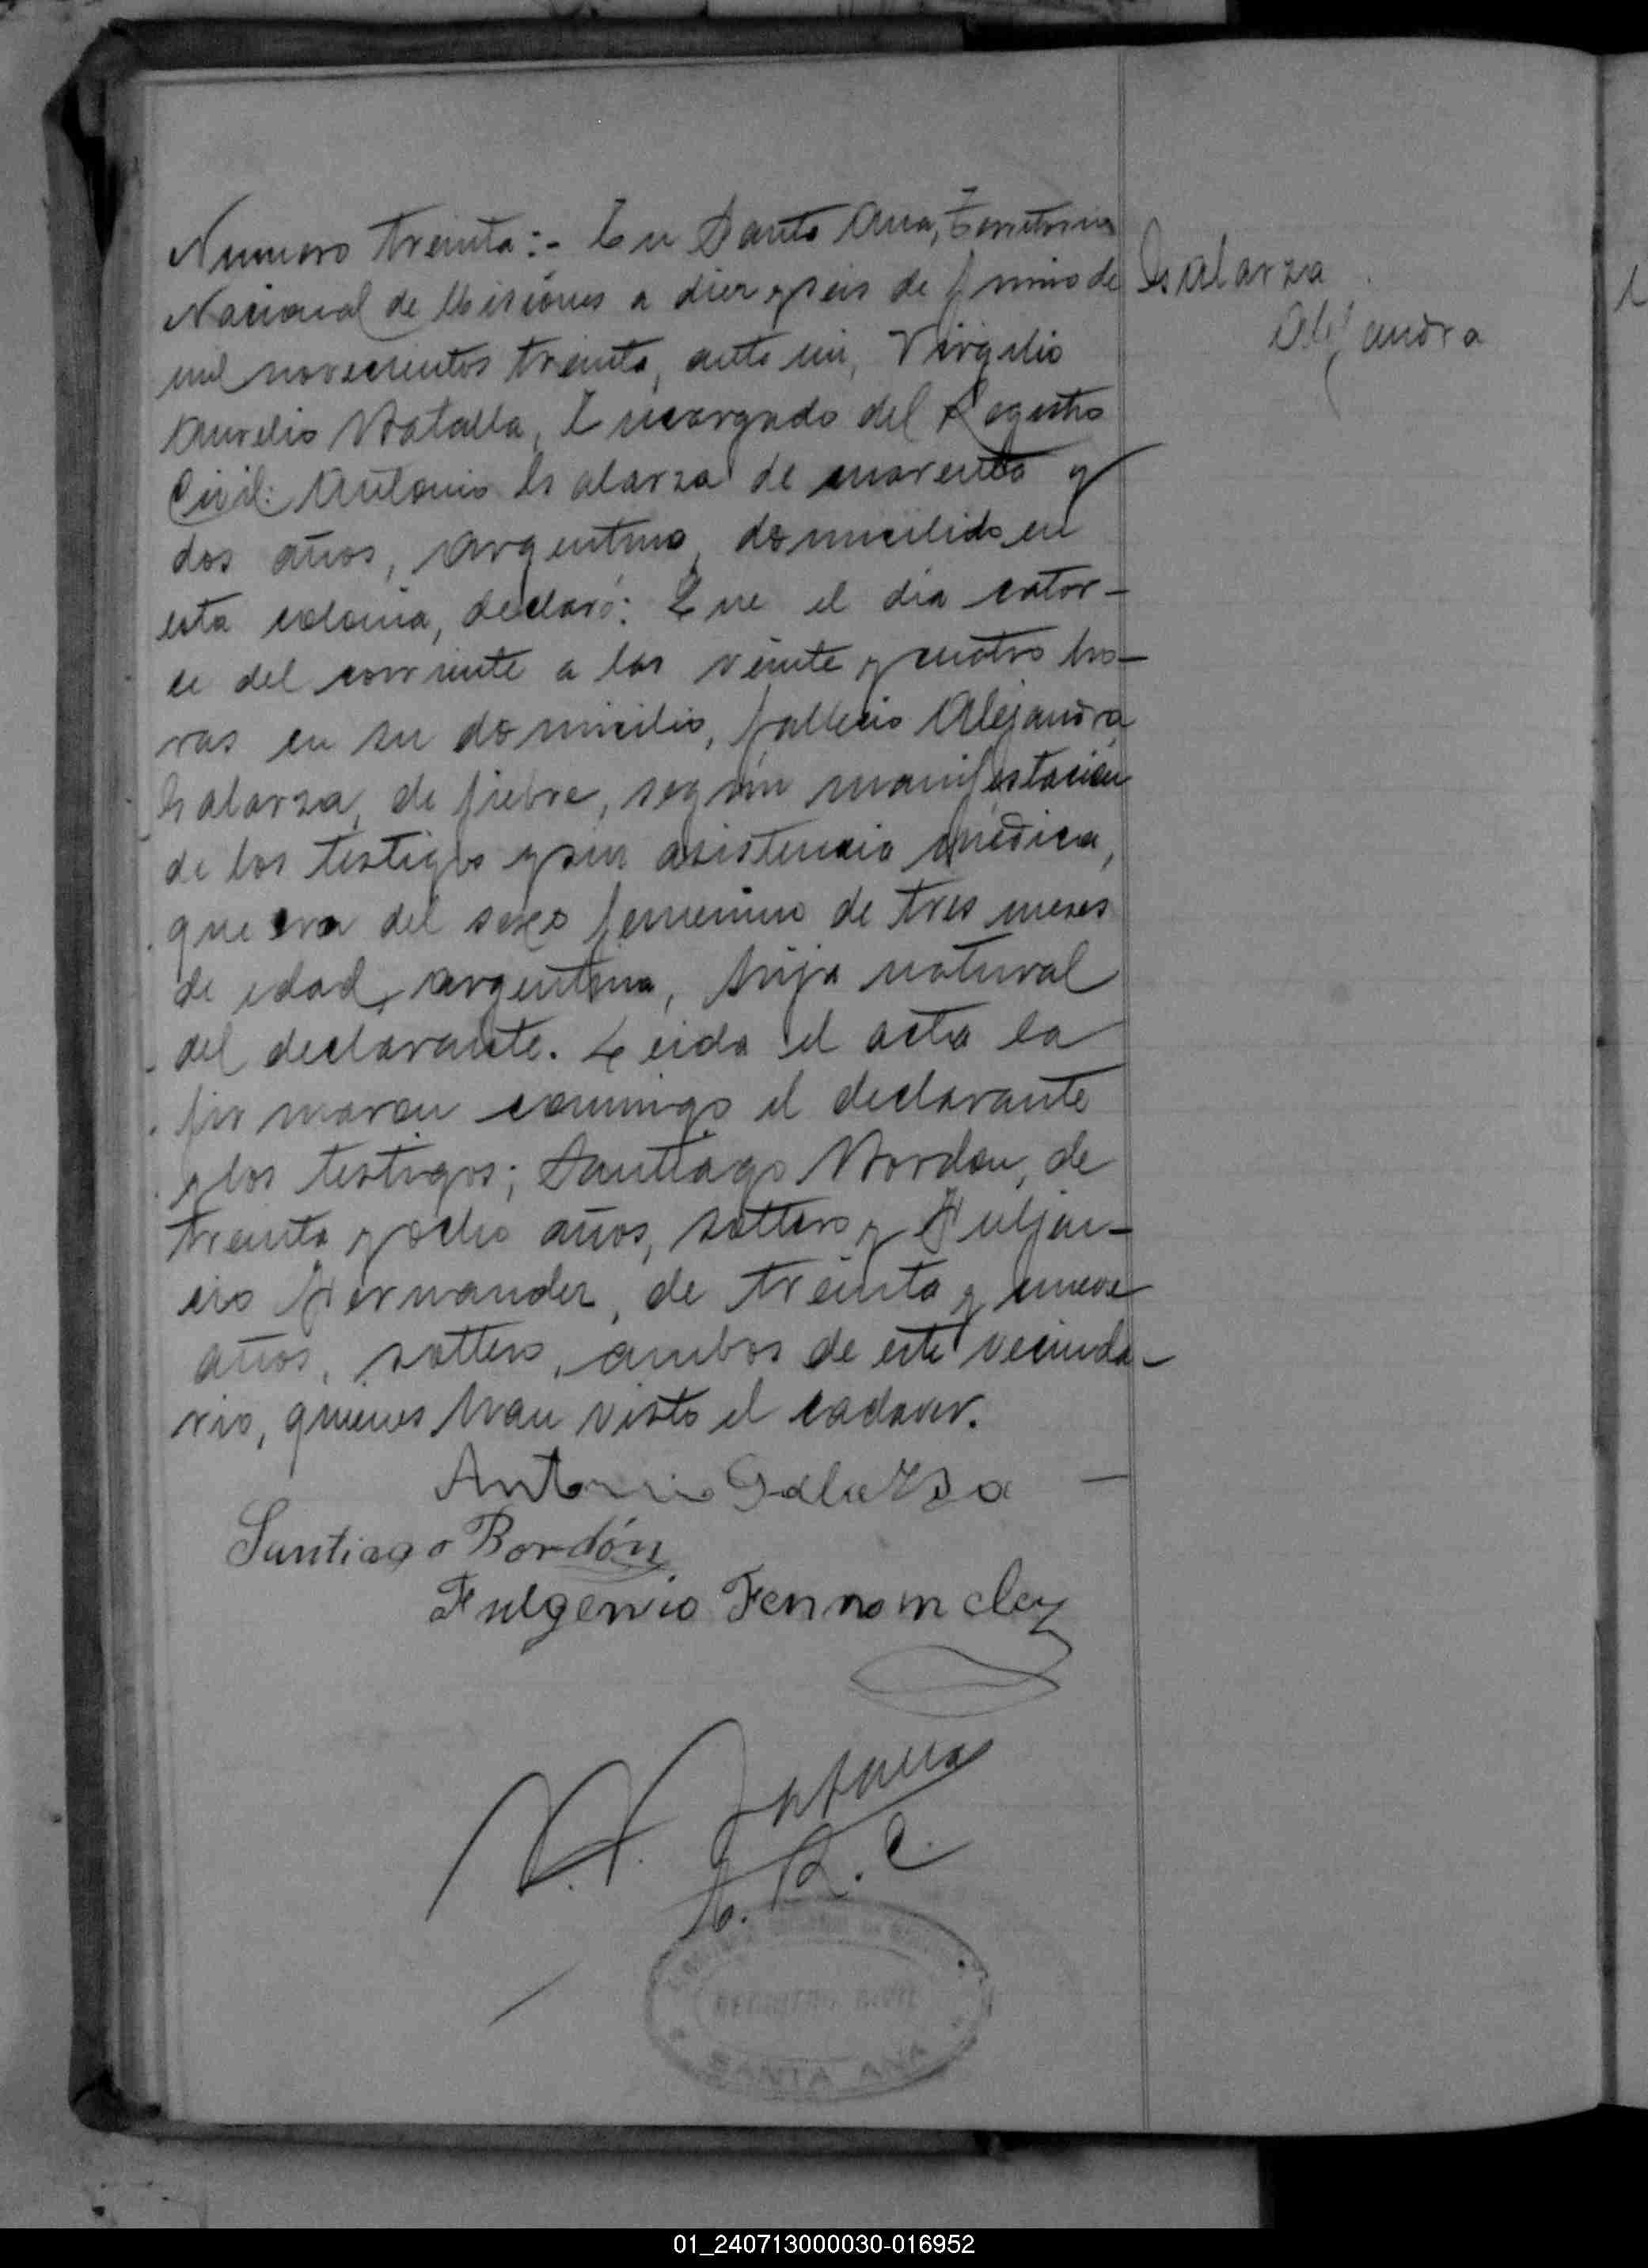 Numero treinta:- En Santa Ana, Territorio
Nacional de Misiones a diez y seis de Junio de
mil novecientos treinta, ante mi, Virgilio
Aurelio Batalla, Encargado del Registro
Civil: Antonio Galarza de cuarenta y
dos años, argentino, domicilido en
esta colonia, declaró: Que el dia cator-
ce del corriente a las veinte y cuatro ho-
ras en su domicilio, fallecio Alejandra
Galarza, de fiebre, según manifestacion
de los testigos y sin asistencia médica,
que era del sexo femenino de tres meses
de edad, argentina, hija natural
del declarante. Leida el acta la
firmaron conmigo el declarante
y los testigos; Santiago Bordon, de
treinta y ocho años, soltero y Fuljen-
cio Fernandez, de treinta y nueve
años, soltero, ambos de este vecinda-
rio, quienes han visto el cadaver.
Galarza
Alejandra
Antonio Galarza
Santiago Bordón
Fulgencio Fernandez
V. A. Batalla
E. R. C.
REGISTRO CIVIL
SANTA ANA
01_240713000030-016952